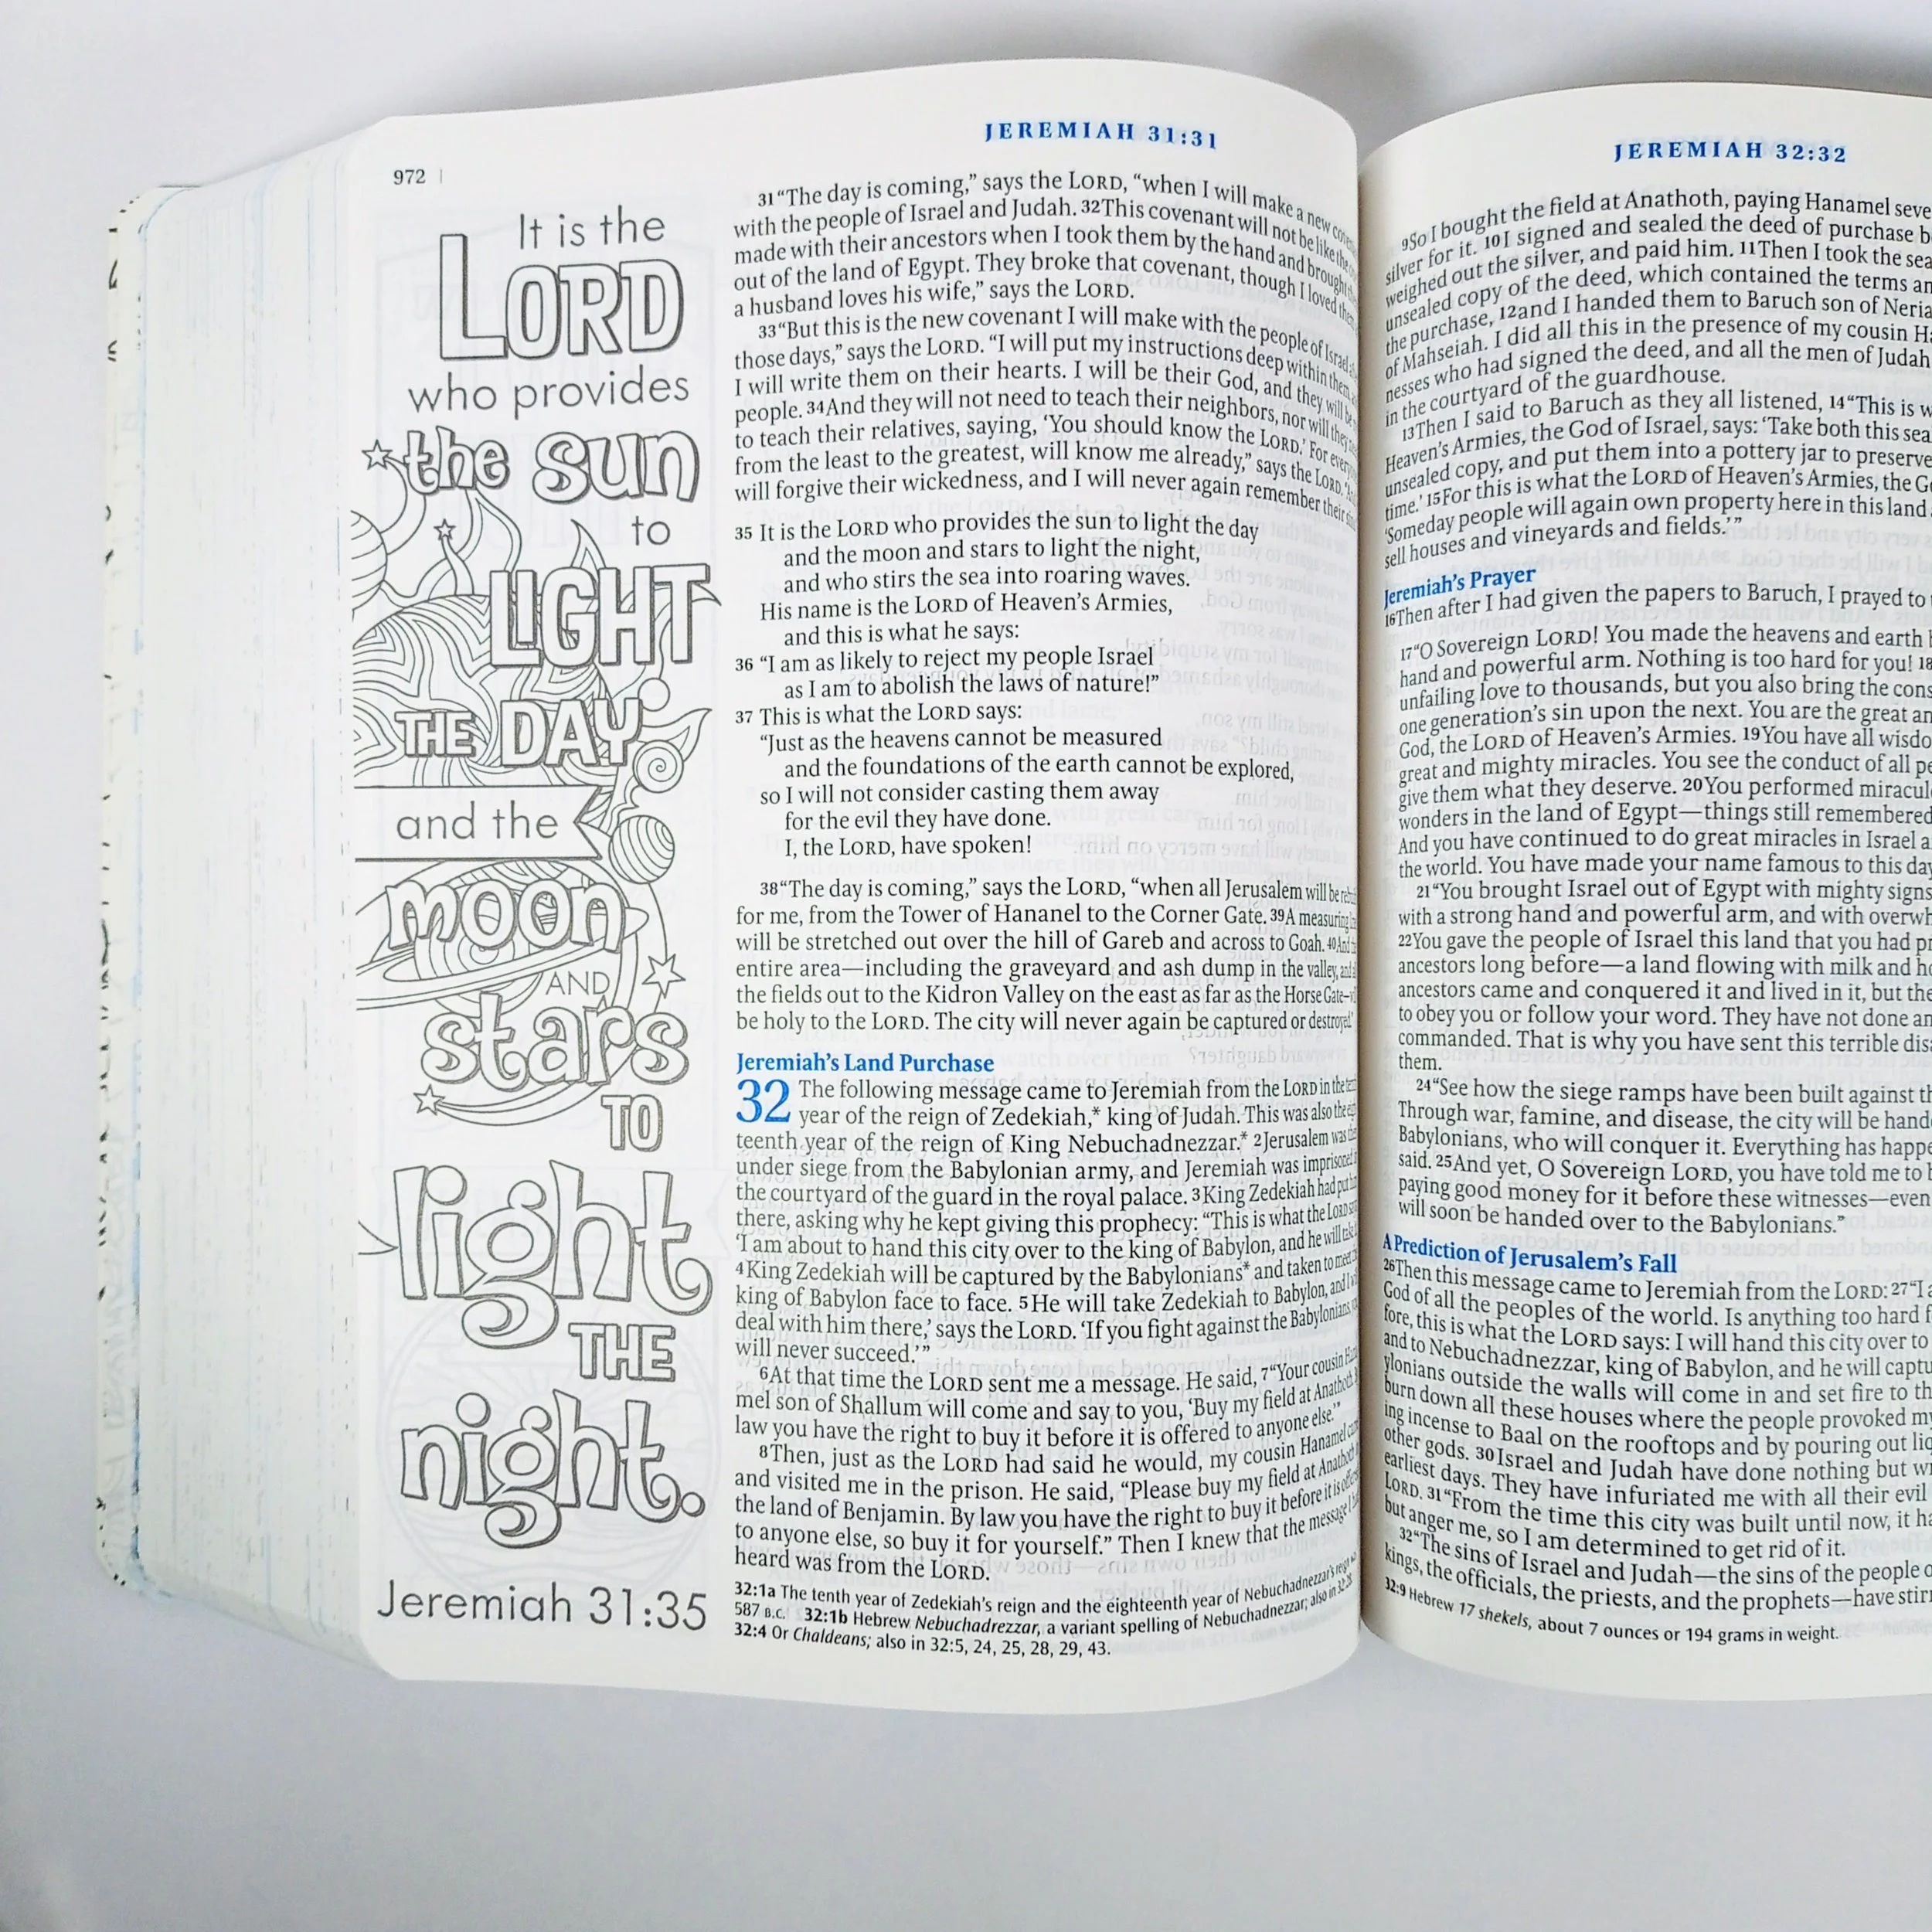 972
It is the
LORD
who provides
the sun
to
LIGHT
THE DAY
and the
moon
AND
stars
TO
light
THE
night.
Jeremiah 31:35
JEREMIAH 31:31
31 “The day is coming,” says the LORD, “when I will make a new
with the people of Israel and Judah. 32 This covenant will not be like the
made with their ancestors when I took them by the hand and brought
out of the land of Egypt. They broke that covenant, though I loved them
a husband loves his wife,” says the LORD.
33 “But this is the new covenant I will make with the people of Israel
those days,” says the LORD. “I will put my instructions deep within them,
I will write them on their hearts. I will be their God, and they will be
people. 34 And they will not need to teach their neighbors, nor will they
to teach their relatives, saying, ‘You should know the LORD.’ For
from the least to the greatest, will know me already,” says the LORD.
will forgive their wickedness, and I will never again remember their
35 It is the LORD who provides the sun to light the day
and the moon and stars to light the night,
and who stirs the sea into roaring waves.
His name is the LORD of Heaven’s Armies,
and this is what he says:
36 “I am as likely to reject my people Israel
as I am to abolish the laws of nature!”
37 This is what the LORD says:
“Just as the heavens cannot be measured
and the foundations of the earth cannot be explored,
so I will not consider casting them away
for the evil they have done.
I, the LORD, have spoken!
38 “The day is coming,” says the LORD, “when all Jerusalem will be
for me, from the Tower of Hananel to the Corner Gate. 39 A measuring
will be stretched out over the hill of Gareb and across to Goah. 40
entire area—including the graveyard and ash dump in the valley,
the fields out to the Kidron Valley on the east as far as the Horse Gate—
be holy to the LORD. The city will never again be captured or destroyed.”
Jeremiah’s Land Purchase
32 The following message came to Jeremiah from the LORD in the
year of the reign of Zedekiah,* king of Judah. This was also the
teenth year of the reign of King Nebuchadnezzar.* 2 Jerusalem was
under siege from the Babylonian army, and Jeremiah was imprisoned
the courtyard of the guard in the royal palace. 3 King Zedekiah had put
there, asking why he kept giving this prophecy: “This is what the LORD
‘I am about to hand this city over to the king of Babylon, and he will
4 King Zedekiah will be captured by the Babylonians* and taken to meet
king of Babylon face to face. 5 He will take Zedekiah to Babylon, and
deal with him there,’ says the LORD. ‘If you fight against the Babylonians,
will never succeed.’”
6 At that time the LORD sent me a message. He said, 7 “Your cousin
mel son of Shallum will come and say to you, ‘Buy my field at Anathoth.
law you have the right to buy it before it is offered to anyone else.’”
8 Then, just as the LORD had said he would, my cousin Hanamel
and visited me in the prison. He said, “Please buy my field at Anathoth
the land of Benjamin. By law you have the right to buy it before it is
to anyone else, so buy it for yourself.” Then I knew that the message I
heard was from the LORD.
32:1a The tenth year of Zedekiah’s reign and the eighteenth year of Nebuchadnezzar’s reign
587 B.C. 32:1b Hebrew Nebuchadrezzar, a variant spelling of Nebuchadnezzar; also in
32:4 Or Chaldeans; also in 32:5, 24, 25, 28, 29, 43.
JEREMIAH 32:32
9 So I bought the field at Anathoth, paying Hanamel
silver for it. 10 I signed and sealed the deed of purchase
weighed out the silver, and paid him. 11 Then I took the
unsealed copy of the deed, which contained the terms
the purchase, 12 and I handed them to Baruch son of
of Mahseiah. I did all this in the presence of my cousin
nesses who had signed the deed, and all the men of Judah
in the courtyard of the guardhouse.
13 Then I said to Baruch as they all listened, 14 “This is
Heaven’s Armies, the God of Israel, says: ‘Take both this
unsealed copy, and put them into a pottery jar to preserve
time.’ 15 For this is what the LORD of Heaven’s Armies, the
‘Someday people will again own property here in this land
sell houses and vineyards and fields.’”
Jeremiah’s Prayer
16 Then after I had given the papers to Baruch, I prayed to
17 “O Sovereign LORD! You made the heavens and earth
hand and powerful arm. Nothing is too hard for you!
unfailing love to thousands, but you also bring the
one generation’s sin upon the next. You are the great
God, the LORD of Heaven’s Armies. 19 You have all
great and mighty miracles. You see the conduct of all
give them what they deserve. 20 You performed
wonders in the land of Egypt—things still remembered
And you have continued to do great miracles in Israel
the world. You have made your name famous to this day
21 “You brought Israel out of Egypt with mighty signs
with a strong hand and powerful arm, and with
22 You gave the people of Israel this land that you had
ancestors long before—a land flowing with milk and
ancestors came and conquered it and lived in it, but
to obey you or follow your word. They have not done
commanded. That is why you have sent this terrible
them.
24 “See how the siege ramps have been built against
Through war, famine, and disease, the city will be
Babylonians, who will conquer it. Everything has
said. 25 And yet, O Sovereign LORD, you have told me to
paying good money for it before these witnesses—even
will soon be handed over to the Babylonians.”
A Prediction of Jerusalem’s Fall
26 Then this message came to Jeremiah from the LORD: 27 “I
God of all the peoples of the world. Is anything too hard
fore, this is what the LORD says: I will hand this city over to
and to Nebuchadnezzar, king of Babylon, and he will
ylonians outside the walls will come in and set fire to
burn down all these houses where the people provoked
ing incense to Baal on the rooftops and by pouring out
other gods. 30 Israel and Judah have done nothing but
earliest days. They have infuriated me with all their evil
LORD. 31 “From the time this city was built until now, it
but anger me, so I am determined to get rid of it.
32 “The sins of Israel and Judah—the sins of the people
kings, the officials, the priests, and the prophets—have
32:9 Hebrew 17 shekels, about 7 ounces or 194 grams in weight.